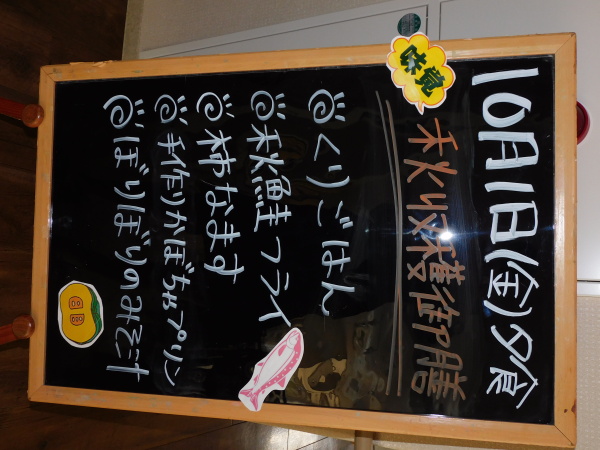 10月1日(金)夕食
味覚
秋収穫御膳
くりごはん
秋鮭フライ
柿なます
手作りかぼちゃプリン
ぼりぼりのみそ汁